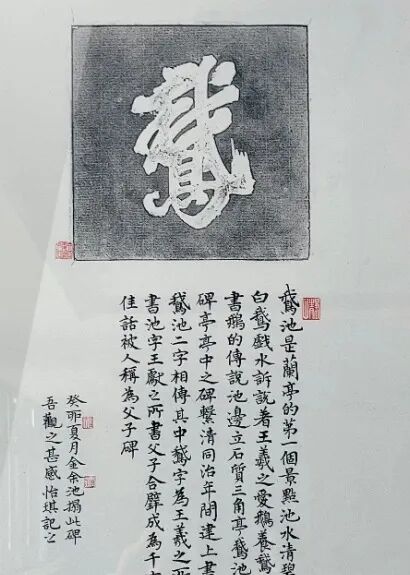 鵞
鵞池是蘭亭的第一個景點池水清碧
白鵞戲水訴說着王羲之愛鵞養鵞
書鵞的傳說池邊立石質三角亭鵞池
碑亭亭中之碑繫清同治年間建上書
鵞池二字相傳其中鵞字為王羲之所
書池字王獻之所書父子合璧成為千
佳話被人稱為父子碑
癸卯夏月金余池搨此碑
吾觀之甚感怡琪記之